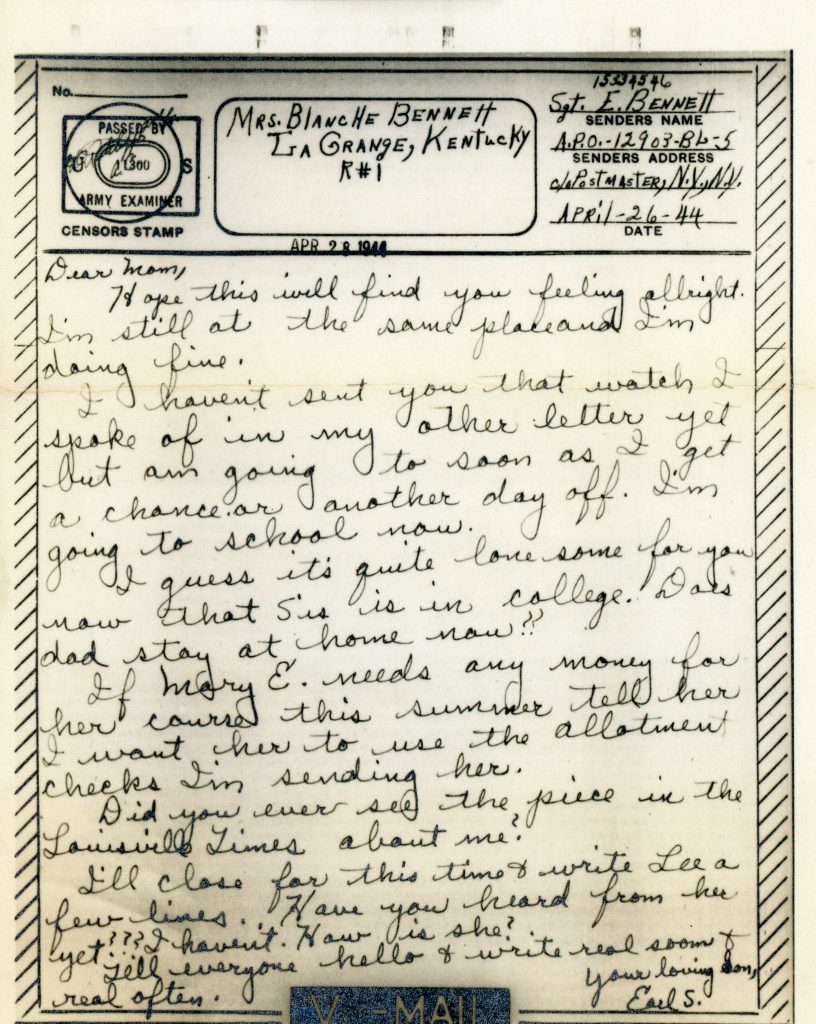 No.
PASSED BY
U 11300 S
ARMY EXAMINER
CENSORS STAMP
MRS. BLANCHE BENNETT
LA GRANGE, KENTUCKY
R#1
Sgt. E. BENNETT
SENDERS NAME
A.P.O.-12903-BL-5
SENDERS ADDRESS
c/o POSTMASTER, N.Y., N.Y.
APRil-26-44
DATE
APR 28 1944
Dear Mom,
Hope this will find you feeling allright.
I'm still at the same place and I'm
doing fine.
I haven't sent you that watch I
spoke of in my other letter yet
but am going to soon as I get
a chance or another day off. I'm
going to school now.
I guess it's quite lonesome for you
now that Sis is in college. Does
dad stay at home now??
If Mary E. needs any money for
her course this summer tell her
I want her to use the allotment
checks I'm sending her.
Did you ever see the piece in the
Louisville Times about me?
I'll close for this time & write Lee a
few lines. Have you heard from her
yet??? I haven't. How is she?
Tell everyone hello & write real soon &
real often.
Your loving son,
Earl S.
V--MAIL